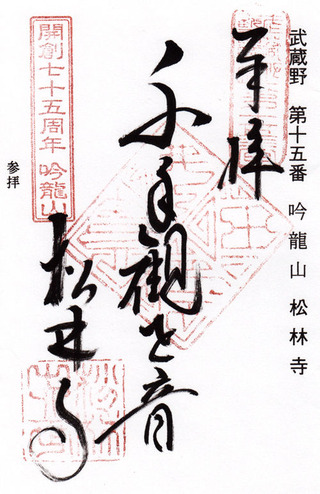 武蔵野 第十五番 吟龍山 松林寺
奉拝
千手観世音
松林寺
開創七十五周年 吟龍山
参拝